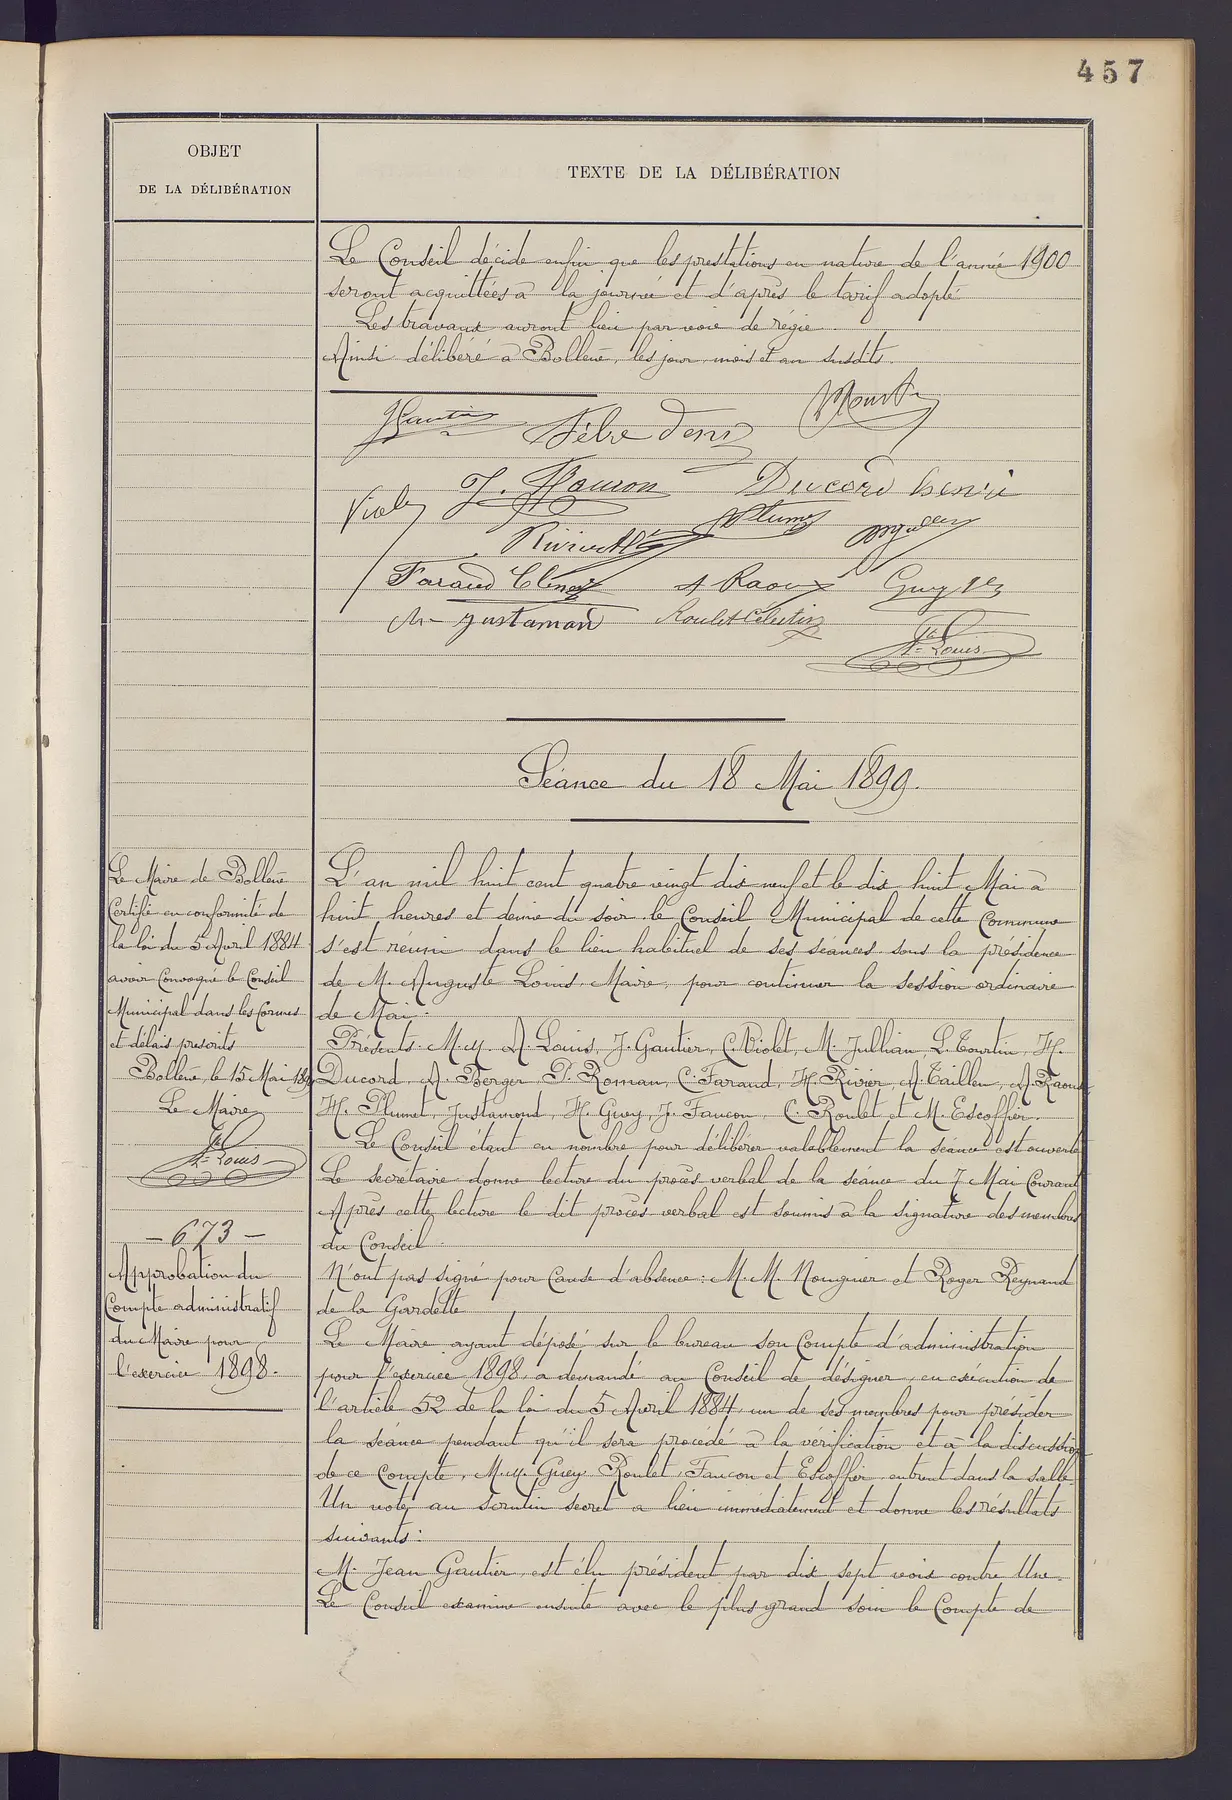 457
OBJET
DE LA DÉLIBÉRATION
TEXTE DE LA DÉLIBÉRATION
Le Conseil décide enfin que les prestations en nature de l'année 1900
seront acquittées à la journée et d'après le tarif adopté
Les travaux auront lieu par voie de régie.
Ainsi délibéré à Bollène, les jour, mois et an susdits.
JGautier
Fèbre Denis
J. Faucon
Ducord henri
Violet
Plumet
Faraud Clément
A Raoux
Guey
Justamond
Roulet Célestin
A= Louis
Séance du 18 Mai 1899.
Le Maire de Bollène
Certifie en conformité de
la loi du 5 Avril 1884
avoir convoqué le Conseil
Municipal dans les formes
et délais prescrits
Bollène, le 15 Mai 1899
Le Maire
A= Louis
- 673 -
Approbation du
Compte administratif
du Maire pour
l'exercice 1898.
L'an mil huit cent quatre vingt dix neuf et le dix huit Mai à
huit heures et demie du soir le Conseil Municipal de cette Commune
s'est réuni dans le lieu habituel de ses séances sous la présidence
de M. Auguste Louis, Maire, pour continuer la session ordinaire
de Mai.
Présents. M.M. A. Louis, J. Gautier, C. Violet, M. Jullian, L. Tourtin, H.
Ducord, A. Berger, P. Roman, C. Faraud, H. Rivier, A. Taillen, A. Raoux
H. Plumet, Justamond, H. Guey, J. Faucon, C. Roulet et M. Escoffier.
Le Conseil étant en nombre pour délibérer valablement la séance est ouverte
Le secrétaire donne lecture du procès verbal de la séance du 7 Mai Courant
Après cette lecture le dit procès verbal est soumis à la signature des membres
du Conseil
N'ont pas signé pour cause d'absence: M.M. Nouguier et Roger Reynaud
de la Gardette
Le Maire ayant déposé sur le bureau son Compte d'administration
pour l'exercice 1898, a demandé au Conseil de désigner, en exécution de
l'article 52 de la loi du 5 Avril 1884, un de ses membres pour présider
la séance pendant qu'il sera procédé à la vérification et à la discussion
de ce Compte, M.M. Guey, Roulet, Faucon et Escoffier, entrent dans la salle.
Un vote au scrutin secret a lieu immédiatement et donne les résultats
suivants:
M. Jean Gautier, est élu président par dix sept voix contre Une.
Le Conseil examine ensuite avec le plus grand soin le Compte de